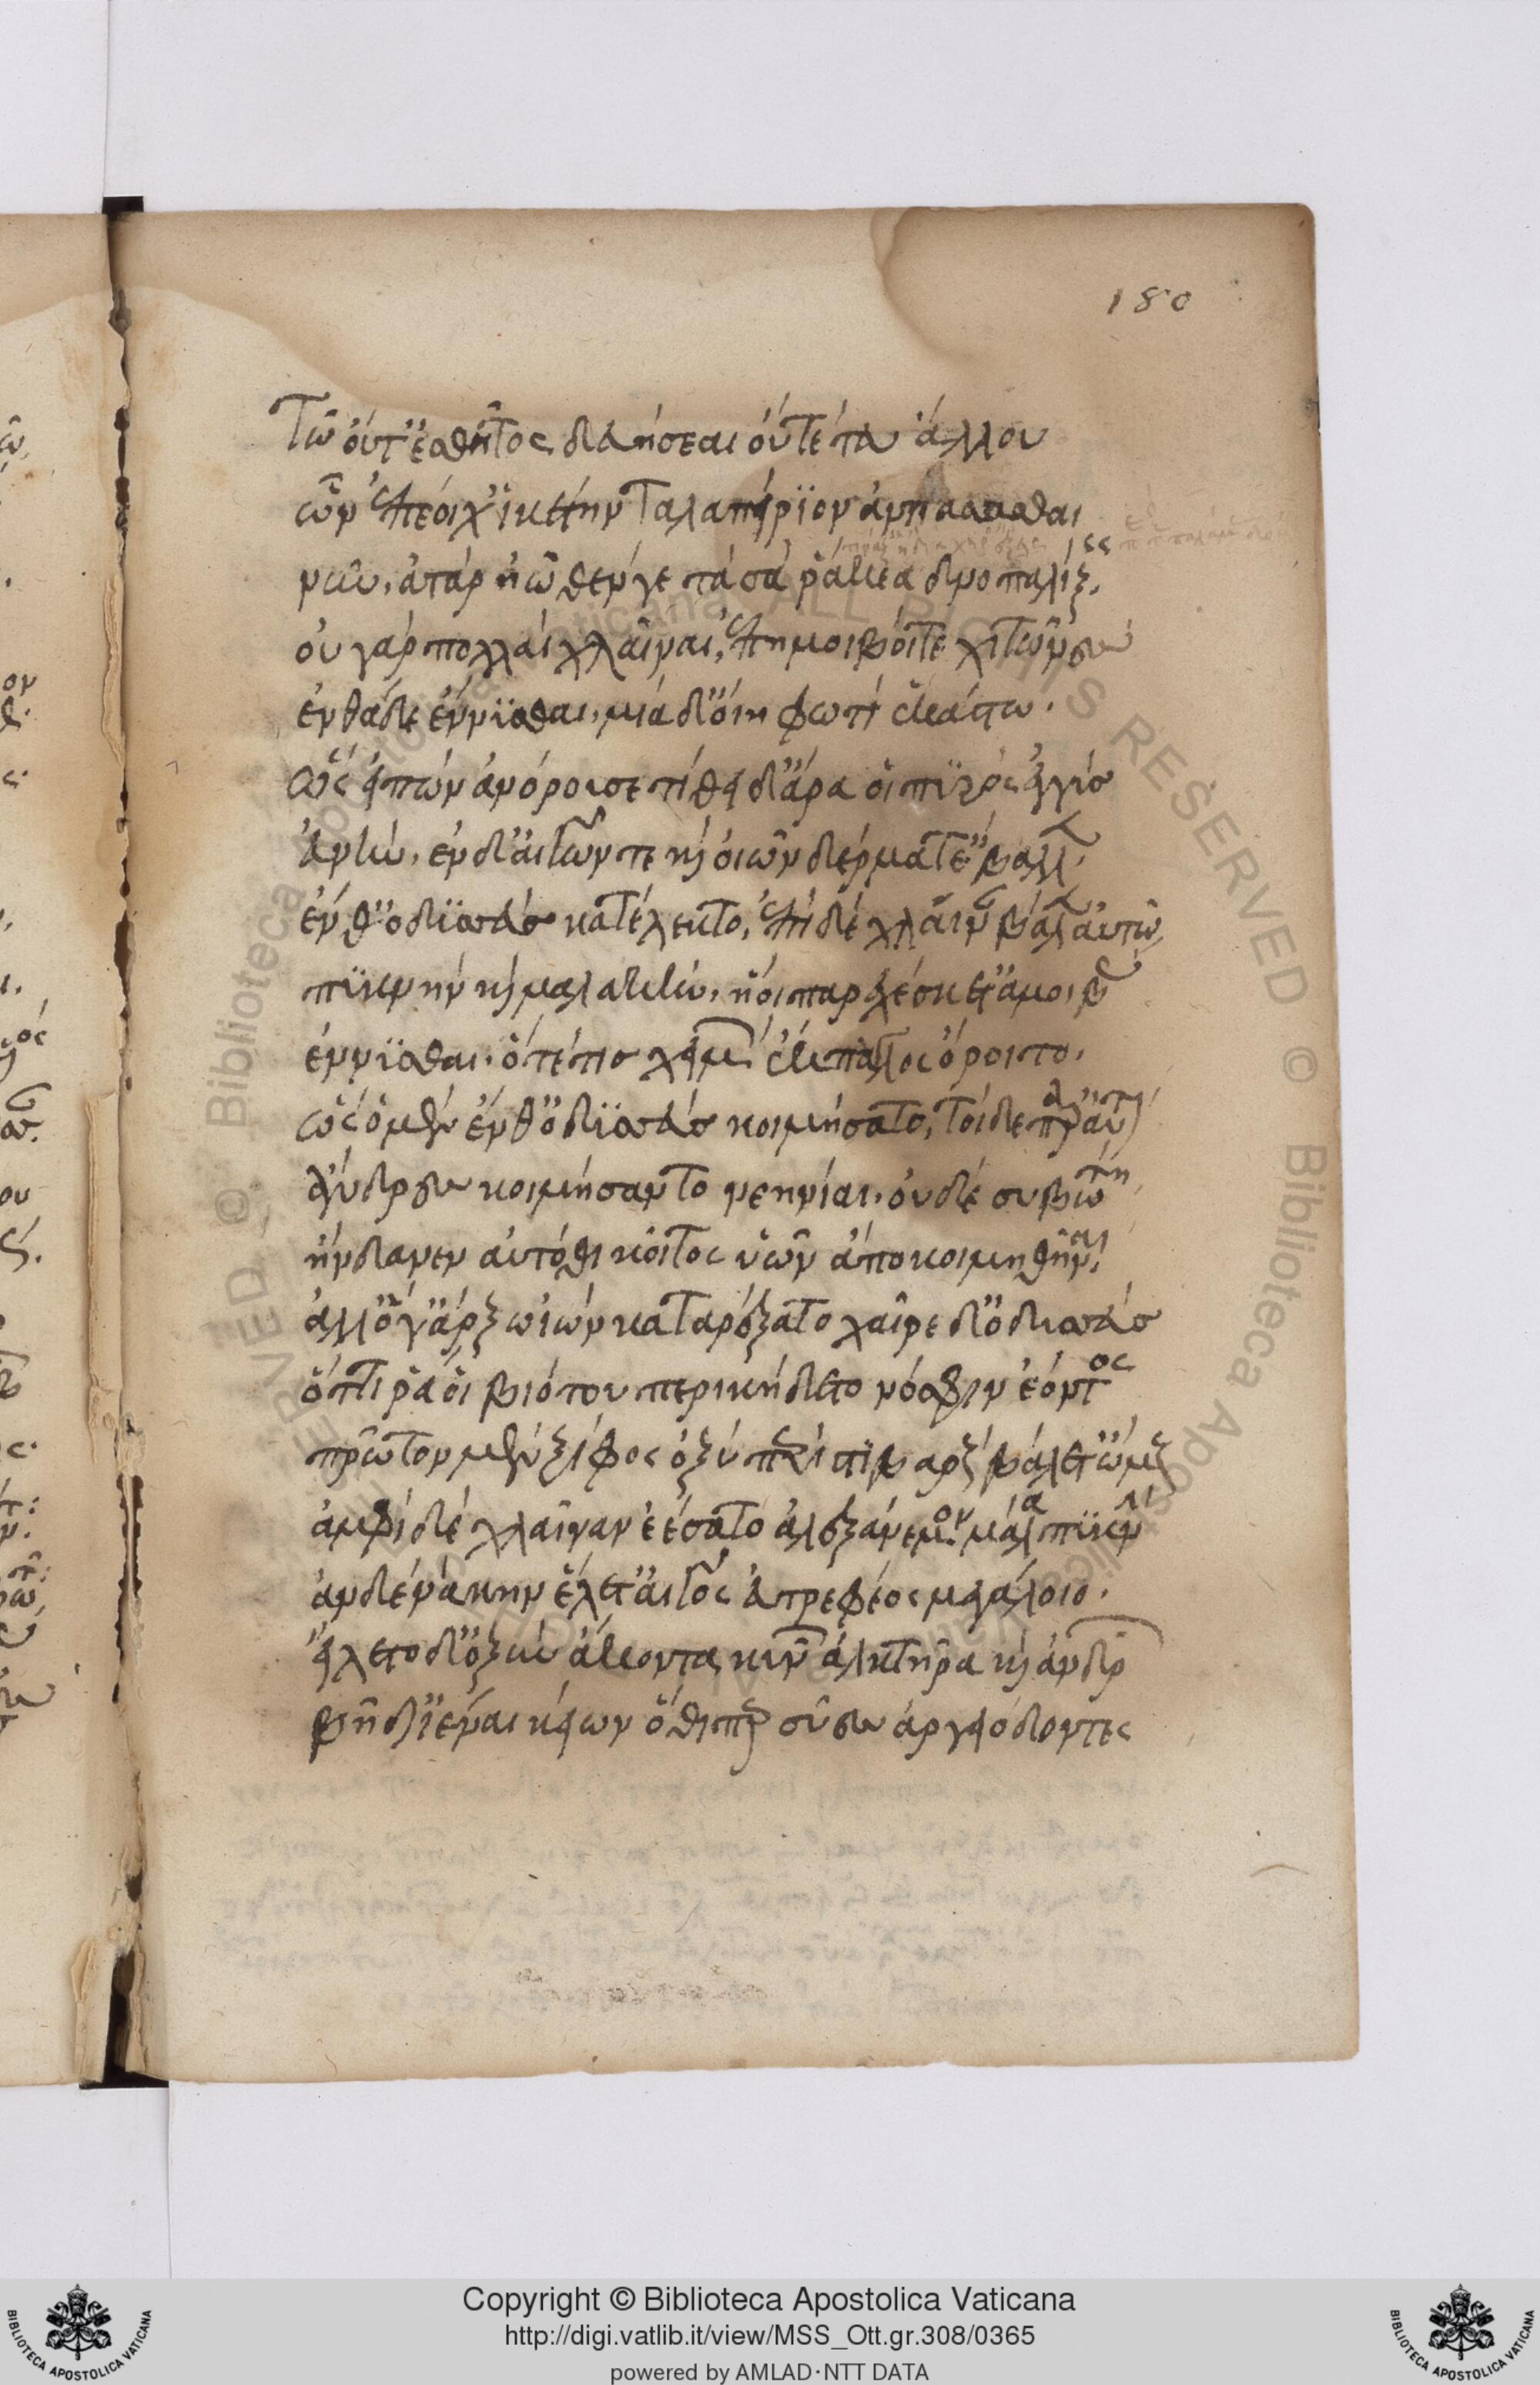 180
τῶ οὔτ' ἐσθῆτος δευήσεαι οὔτε τευ ἄλλου
ὧν ἐπέοιχ' ἱκέτην ταλαπείριον ἀντιάσασθαι
νῦν, ἀτὰρ ἠῶθέν γε τὰ σὰ ῥάκεα δνοπαλίξεις.
οὐ γὰρ πολλαὶ χλαῖναι, ἐπημοιβοί τε χιτῶνες
ἐνθάδε ἕννυσθαι, μία δ' οἴη φωτὶ ἑκάστω.
ὣς εἰπὼν ἀνόρουσε τίθει δ' ἄρα οἱ πυρὸς ἐγγὺς
εὐνήν, ἐν δ' αἰγῶν τε καὶ οἰῶν δέρματ' ἔβαλλεν.
ἔνθ' ὀδυσεὺς κατέλεκτο, ἐπὶ δὲ χλαῖναν βάλεν αὐτῶ,
πυκνὴν καὶ μεγάλην, ἥ οἱ παρεκέσκετ' ἀμοιβὰς
ἕννυσθαι, ὅτε τις χειμὼν ἔκπαγλος ὄροιτο.
ὣς ὁ μὲν ἔνθ' ὀδυσεὺς κοιμήσατο, τοὶ δὲ παρ' αὐτὸν
ἄνδρες κοιμήσαντο νεηνίαι, οὐδὲ συβώτη
ἥνδανεν αὐτόθι κοῖτος ὑῶν ἄπο κοιμηθῆναι
ἀλλ' ὅγ' ἄρ' ἔξω ἰὼν καταρέξατο χαῖρε δ' ὀδυσεὺς
ὅττι ῥά οἱ βιότου περικήδετο νόσφιν ἐόντος
πρῶτον μὲν ξίφος ὀξὺ περὶ στιβαροῖς βάλετ' ὤμοις
ἀμφὶ δὲ χλαῖναν ἑέσατο ἀλεξάνεμον μάλα πυκνήν
ἂν δὲ νάκην ἕλετ' αἰγὸς ἐυτρεφέος μεγάλοιο.
εἵλετο δ' ὀξὺν ἄκοντα, κυνῶν ἀλκτῆρα καὶ ἀνδρῶν
βῆ δ' ἰέναι κείων ὅθι περ σύες ἀργιόδοντες
Copyright © Biblioteca Apostolica Vaticana
http://digi.vatlib.it/view/MSS_Ott.gr.308/0365
powered by AMLAD·NTT DATA